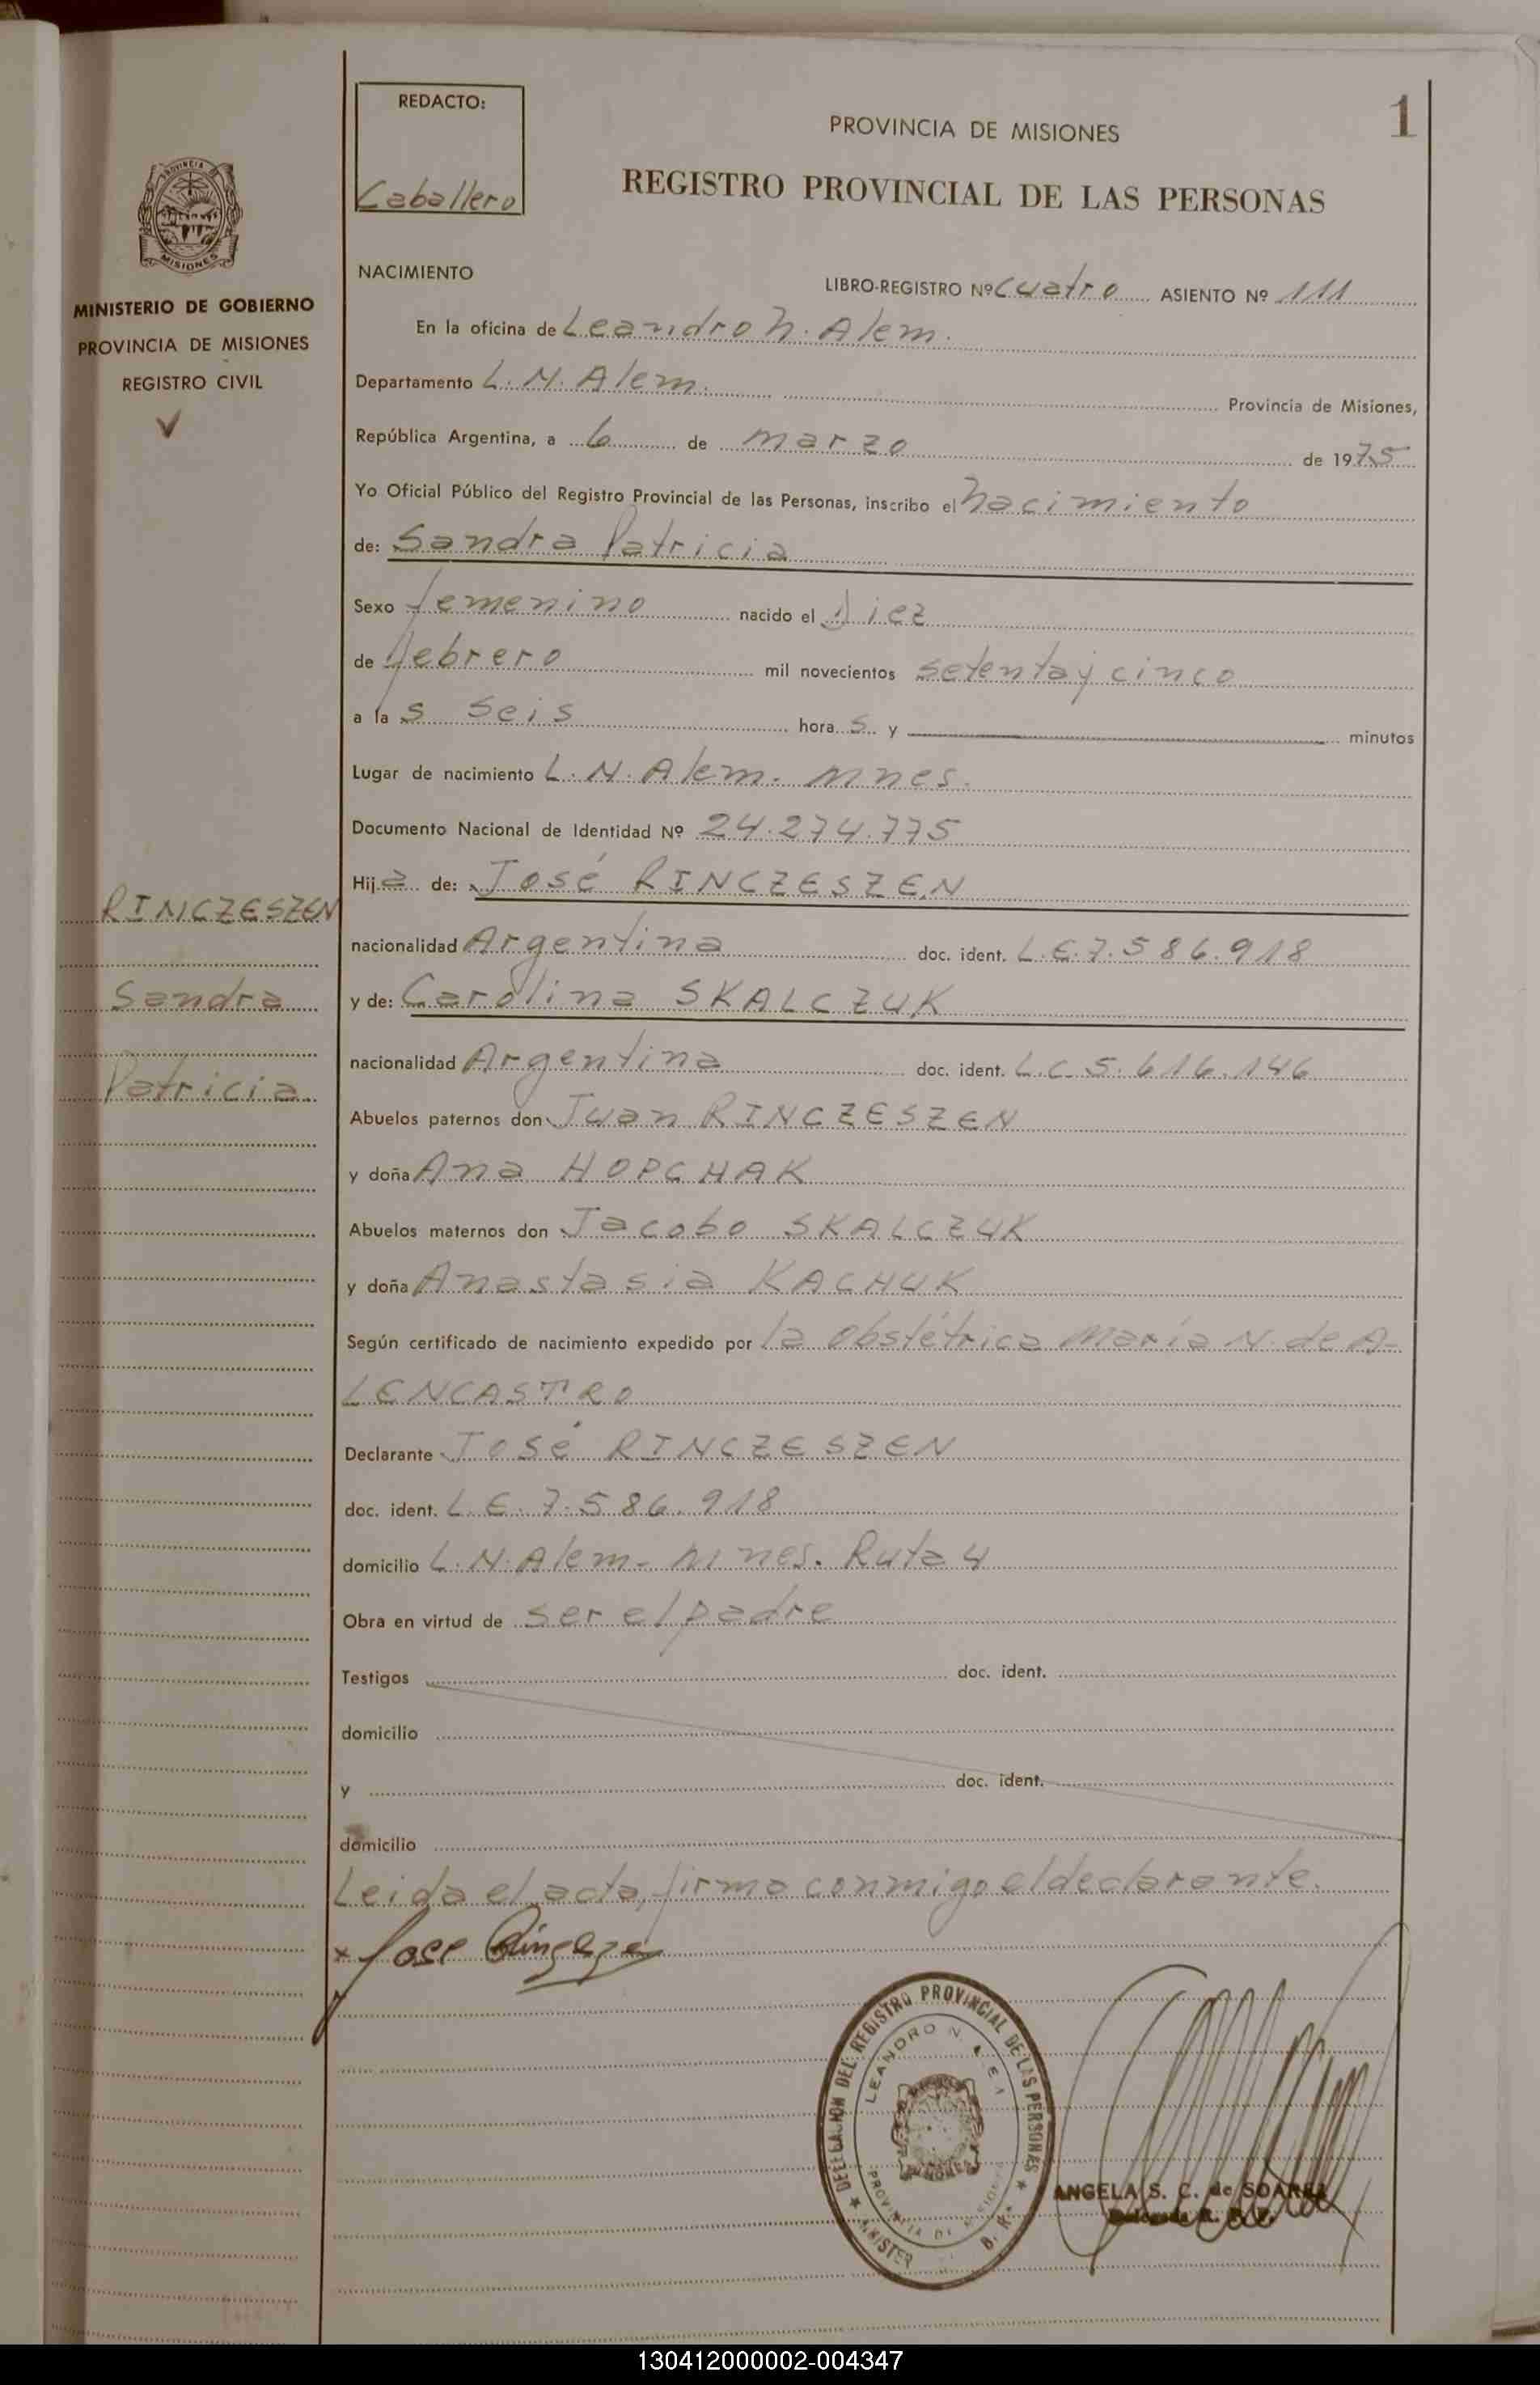 REDACTO:
Caballero
PROVINCIA DE MISIONES
1
REGISTRO PROVINCIAL DE LAS PERSONAS
PROVINCIA
MISIONES
MINISTERIO DE GOBIERNO
PROVINCIA DE MISIONES
REGISTRO CIVIL
NACIMIENTO
LIBRO-REGISTRO Nº Cuatro ASIENTO Nº 111
En la oficina de Leandro N. Alem.
Departamento L. N. Alem. Provincia de Misiones,
República Argentina, a 6 de marzo de 1975
Yo Oficial Público del Registro Provincial de las Personas, inscribo el nacimiento
de: Sandra Patricia
Sexo femenino nacido el Diez
de febrero mil novecientos setenta y cinco
a las seis horas y minutos
Lugar de nacimiento L. N. Alem. Mnes.
Documento Nacional de Identidad Nº 24.274.775
Hija de: José RINCZESZEN
RINCZESZEN
nacionalidad Argentina doc. ident. L.E. 7.586.918
Sandra
y de: Carolina SKALCZUK
nacionalidad Argentina doc. ident. L.C. 5.616.146
Patricia
Abuelos paternos don Juan RINCZESZEN
y doña Ana HOPCHAK
Abuelos maternos don Jacobo SKALCZUK
y doña Anastasia KACHUK
Según certificado de nacimiento expedido por la obstétrica María N. de A-
LENCASTRO
Declarante José RINCZESZEN
doc. ident. L.E. 7.586.918
domicilio L. N. Alem - Mnes. Ruta 4
Obra en virtud de ser el padre
Testigos doc. ident.
domicilio
y doc. ident.
domicilio
Leida el acta, firma conmigo el declarante.
x Jose
DELEGACION DEL REGISTRO PROVINCIAL DE LAS PERSONAS
LEANDRO N.
PROVINCIA DE MISIONES
MISIONES
ANGELA S. C. de SOAREZ
Delegada R. P. P.
130412000002-004347